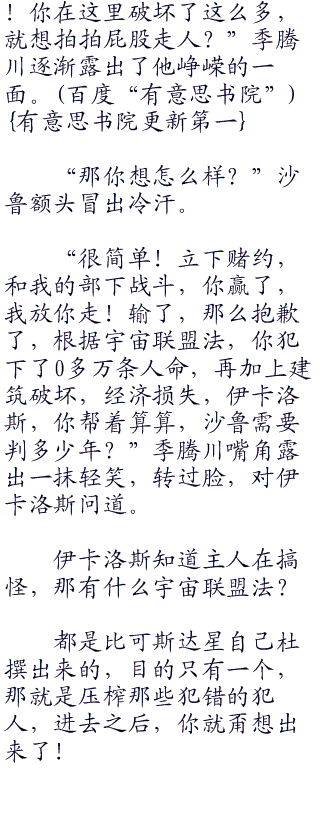 ！你在这里破坏了这么多，
就想拍拍屁股走人？”季腾
川逐渐露出了他峥嵘的一
面。(百度“有意思书院”)
{有意思书院更新第一}
“那你想怎么样？”沙
鲁额头冒出冷汗。
“很简单！立下赌约，
和我的部下战斗，你赢了，
我放你走！输了，那么抱歉
了，根据宇宙联盟法，你犯
下了0多万条人命，再加上建
筑破坏，经济损失，伊卡洛
斯，你帮着算算，沙鲁需要
判多少年？”季腾川嘴角露
出一抹轻笑，转过脸，对伊
卡洛斯问道。
伊卡洛斯知道主人在搞
怪，那有什么宇宙联盟法？
都是比可斯达星自己杜
撰出来的，目的只有一个，
那就是压榨那些犯错的犯
人，进去之后，你就甭想出
来了！